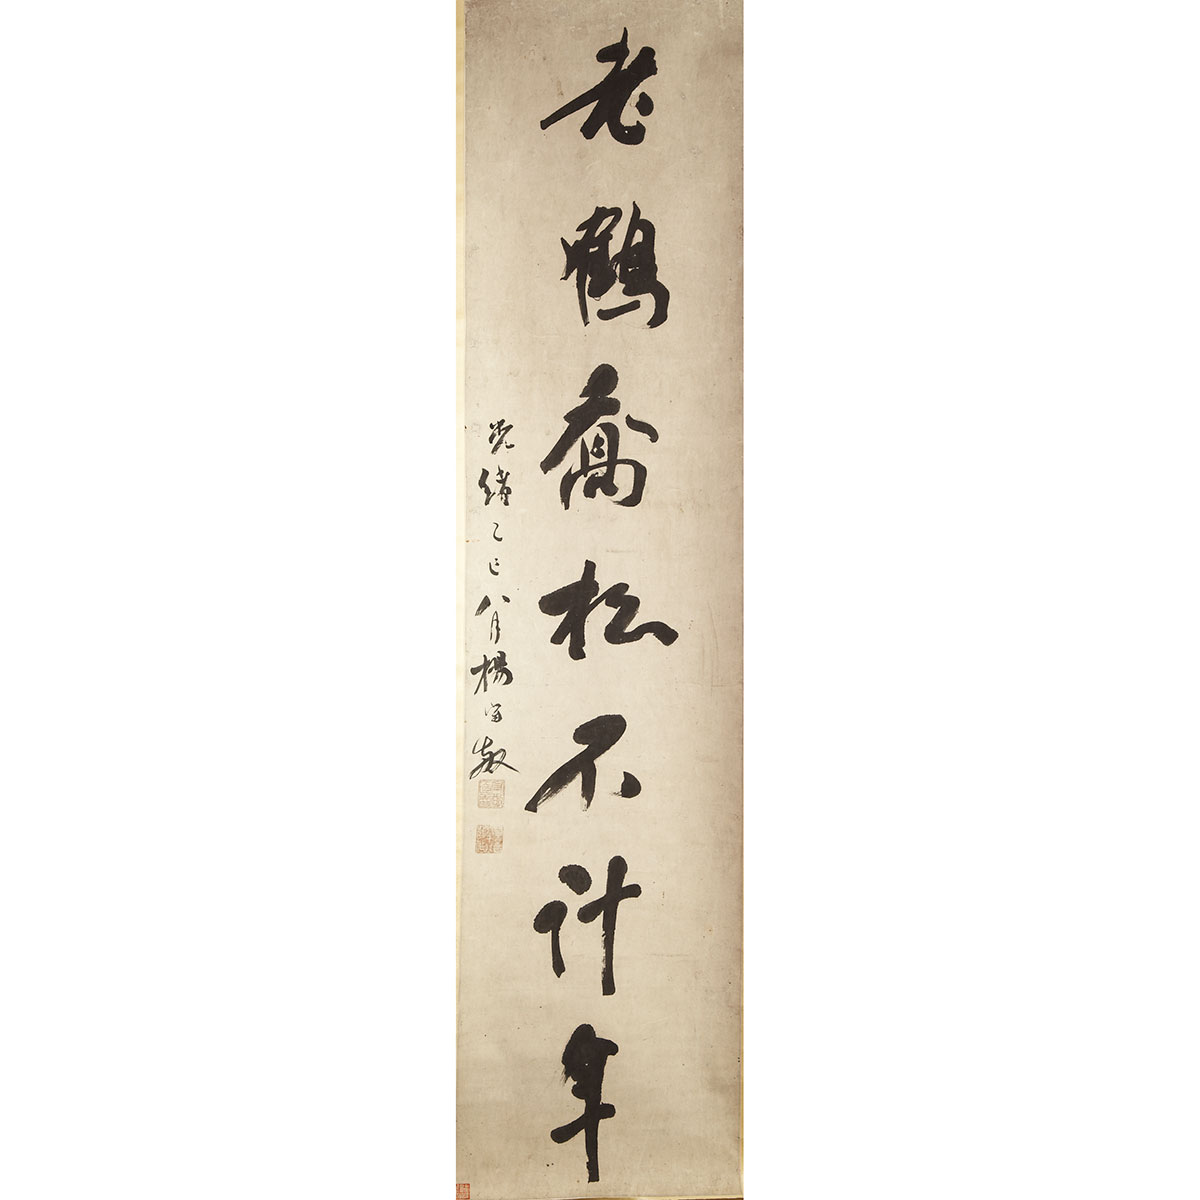 老鶴喬松不計年
光緒乙巳八月楊守敬